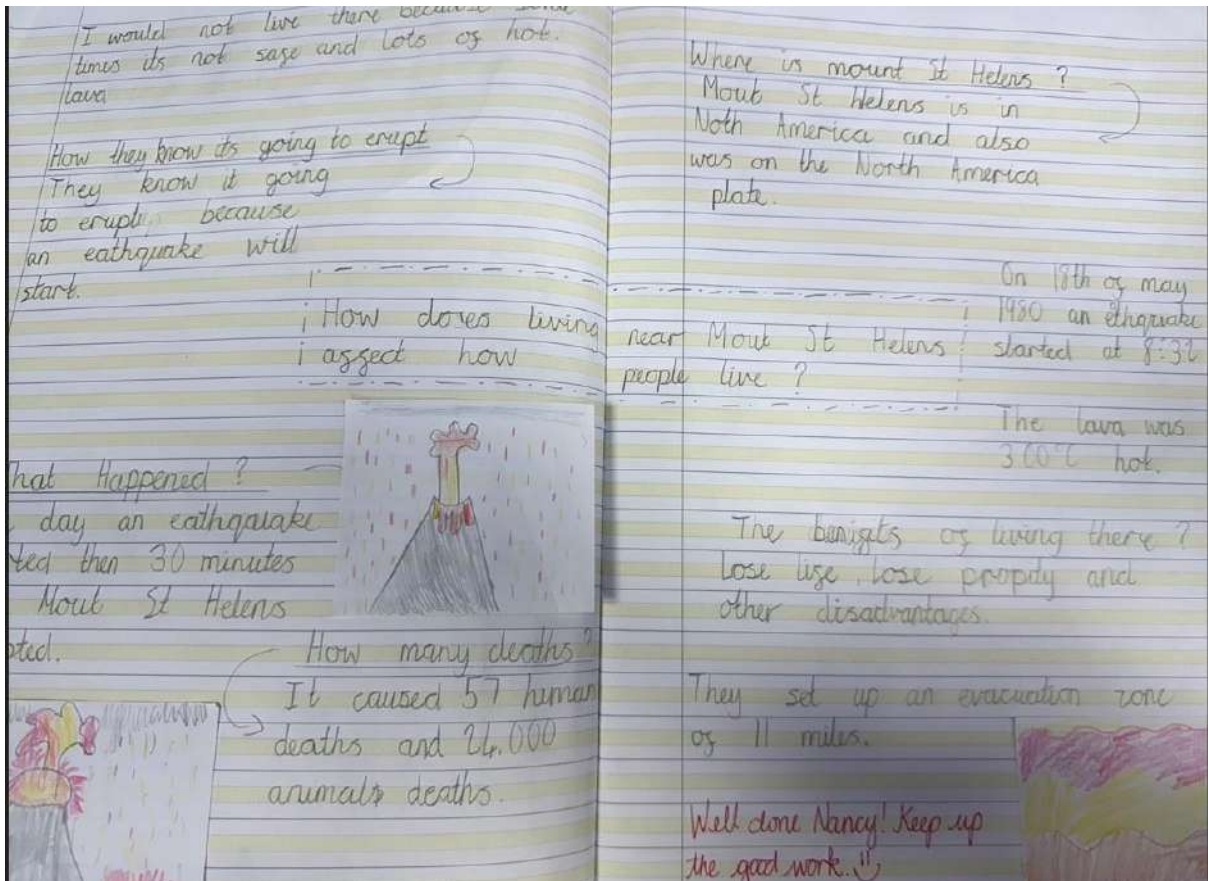 I would not live there because some
times its not sase and lots os hot.
lava
How they know its going to erupt
They know it going
to erupt, because
an eathquake will
start.
How doves living near Mout St Helens
assect how people live ?
hat Happened ?
day an eathqauake
ted then 30 minutes
Mout St Helens
pted.
How many deaths?
It caused 57 human
deaths and 24,000
animals deaths.
Where is mount St Helens ?
Mout St Helens is in
Noth America and also
was on the North America
plate.
On 18th os may
1980 an ethquake
started at 8:32
The lava was
360°C hot.
The benisits os living there ?
Lose lise, lose propity and
other disadvantages.
They set up an evacuation zone
os 11 miles.
Well done Nancy! Keep up
the good work.